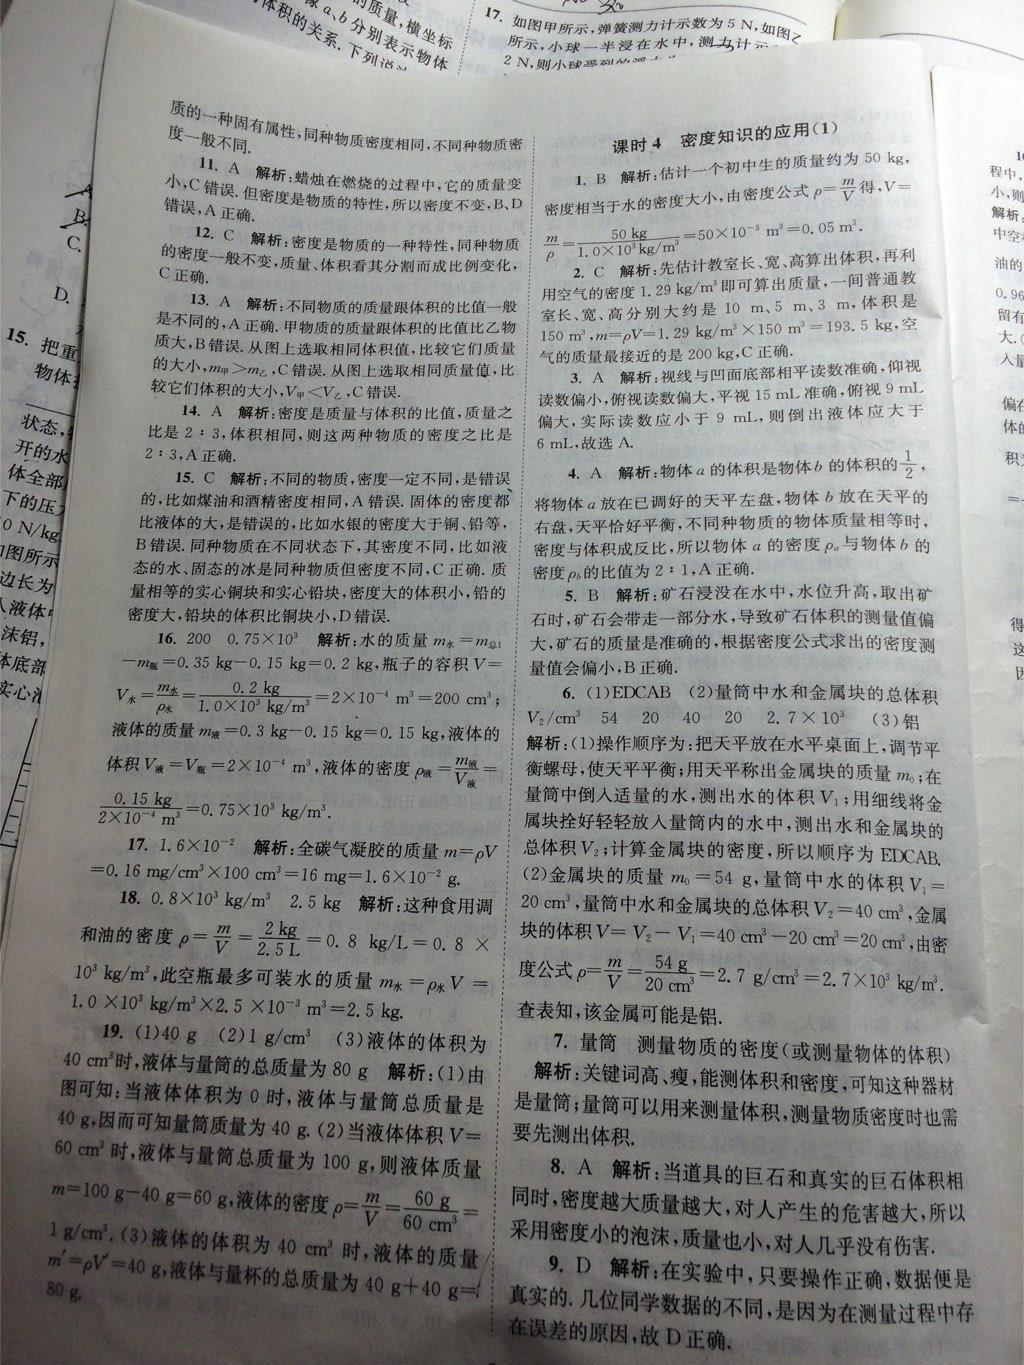 的质量,横坐标
像a、b分别表示物体
体积的关系.下列说法
17. 如图甲所示,弹簧测力计示数为5 N,如图乙
所示,小球一半浸在水中,测力计示
2 N,则小球受到的浮力为
B.
C.
D.
15. 把重
物体
状态,
开的水
体全部
下的压力
0 N/kg
如图所示
边长为
质的一种固有属性,同种物质密度相同,不同种物质密
度一般不同.
11. A 解析:蜡烛在燃烧的过程中,它的质量变
小,C错误.但密度是物质的特性,所以密度不变,B、D
错误,A正确.
12. C 解析:密度是物质的一种特性,同种物质
的密度一般不变,质量、体积看其分割而成比例变化,
C正确.
13. A 解析:不同物质的质量跟体积的比值一般
是不同的,A正确.甲物质的质量跟体积的比值比乙物
质大,B错误.从图上选取相同体积值,比较它们质量
的大小,m甲>m乙,C错误.从图上选取相同质量值,比
较它们体积的大小,V甲<V乙,C错误.
14. A 解析:密度是质量与体积的比值,质量之
比是2∶3,体积相同,则这两种物质的密度之比是
2∶3,A正确.
15. C 解析:不同的物质,密度一定不同,是错误
的,比如煤油和酒精密度相同,A错误.固体的密度都
比液体的大,是错误的,比如水银的密度大于铜、铅等,
B错误.同种物质在不同状态下,其密度不同,比如液
态的水、固态的冰是同种物质但密度不同,C正确.质
量相等的实心铜块和实心铅块,密度大的体积小,铅的
密度大,铅块的体积比铜块小,D错误.
16. 200 0.75×10³ 解析:水的质量m水=m总1
-m瓶=0.35 kg-0.15 kg=0.2 kg,瓶子的容积V=
V水=m水/ρ水=0.2 kg/1.0×10³ kg/m³=2×10⁻⁴ m³=200 cm³;
液体的质量m液=0.3 kg-0.15 kg=0.15 kg,液体的
体积V液=V瓶=2×10⁻⁴ m³,液体的密度ρ液=m液/V液=
0.15 kg/2×10⁻⁴ m³=0.75×10³ kg/m³.
17. 1.6×10⁻² 解析:全碳气凝胶的质量m=ρV
=0.16 mg/cm³×100 cm³=16 mg=1.6×10⁻² g.
18. 0.8×10³ kg/m³ 2.5 kg 解析:这种食用调
和油的密度ρ=m/V=2 kg/2.5 L=0.8 kg/L=0.8×
10³ kg/m³,此空瓶最多可装水的质量m水=ρ水V=
1.0×10³ kg/m³×2.5×10⁻³ m³=2.5 kg.
19. (1)40 g (2)1 g/cm³ (3)液体的体积为
40 cm³时,液体与量筒的总质量为80 g 解析:(1)由
图可知:当液体体积为0时,液体与量筒总质量是
40 g,因而可知量筒质量为40 g.(2)当液体体积V=
60 cm³时,液体与量筒总质量为100 g,则液体质量
m=100 g-40 g=60 g,液体的密度ρ=m/V=60 g/60 cm³=
1 g/cm³.(3)液体的体积为40 cm³时,液体的质量
m′=ρV′=40 g,液体与量杯的总质量为40 g+40 g=
80 g.
课时4 密度知识的应用(1)
1. B 解析:估计一个初中生的质量约为50 kg,
密度相当于水的密度大小,由密度公式ρ=m/V得,V=
m/ρ=50 kg/1.0×10³kg/m³=50×10⁻³ m³=0.05 m³.
2. C 解析:先估计教室长、宽、高算出体积,再利
用空气的密度1.29 kg/m³即可算出质量,一间普通教
室长、宽、高分别大约是10 m、5 m、3 m,体积是
150 m³,m=ρV=1.29 kg/m³×150 m³=193.5 kg,空
气的质量最接近的是200 kg,C正确.
3. A 解析:视线与凹面底部相平读数准确,仰视
读数偏小,俯视读数偏大,平视15 mL准确,俯视9 mL
偏大,实际读数应小于9 mL,则倒出液体应大于
6 mL,故选A.
4. A 解析:物体a的体积是物体b的体积的1/2,
将物体a放在已调好的天平左盘,物体b放在天平的
右盘,天平恰好平衡,不同种物质的物体质量相等时,
密度与体积成反比,所以物体a的密度ρa与物体b的
密度ρb的比值为2∶1,A正确.
5. B 解析:矿石浸没在水中,水位升高,取出矿
石时,矿石会带走一部分水,导致矿石体积的测量值偏
大,矿石的质量是准确的,根据密度公式求出的密度测
量值会偏小,B正确.
6. (1)EDCAB (2)量筒中水和金属块的总体积
V₂/cm³ 54 20 40 20 2.7×10³ (3)铝
解析:(1)操作顺序为:把天平放在水平桌面上,调节平
衡螺母,使天平平衡;用天平称出金属块的质量m₀;在
量筒中倒入适量的水,测出水的体积V₁;用细线将金
属块拴好轻轻放入量筒内的水中,测出水和金属块的
总体积V₂;计算金属块的密度,所以顺序为EDCAB.
(2)金属块的质量m₀=54 g,量筒中水的体积V₁=
20 cm³,量筒中水和金属块的总体积V₂=40 cm³,金属
块的体积V=V₂-V₁=40 cm³-20 cm³=20 cm³,由密
度公式ρ=m/V=54 g/20 cm³=2.7 g/cm³=2.7×10³ kg/m³.
查表知,该金属可能是铝.
7. 量筒 测量物质的密度(或测量物体的体积)
解析:关键词高、瘦,能测体积和密度,可知这种器材
是量筒;量筒可以用来测量体积,测量物质密度时也需
要先测出体积.
8. A 解析:当道具的巨石和真实的巨石体积相
同时,密度越大质量越大,对人产生的危害越大,所以
采用密度小的泡沫,质量也小,对人几乎没有伤害.
9. D 解析:在实验中,只要操作正确,数据便是
真实的.几位同学数据的不同,是因为在测量过程中存
在误差的原因,故D正确.
程中,
小,则
解析:
中空
油的
0.96
留有
大.
人量
偏在
体的
积